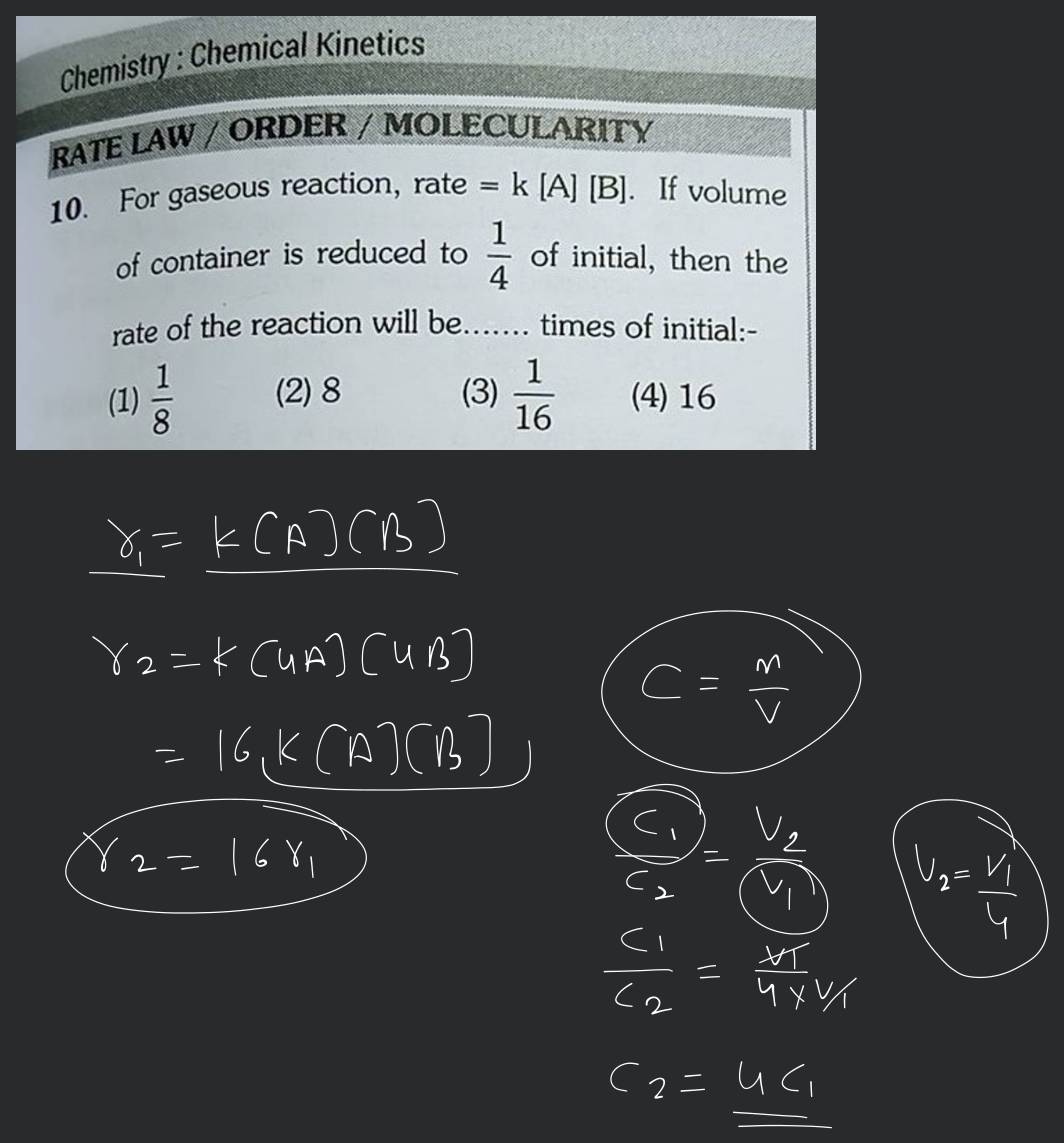 Chemistry : Chemical Kinetics
RATE LAW / ORDER / MOLECULARITY
10. For gaseous reaction, rate = k [A] [B]. If volume
of container is reduced to 1/4 of initial, then the
rate of the reaction will be....... times of initial:-
(1) 1/8 (2) 8 (3) 1/16 (4) 16
r₁ = k[A][B]
r₂ = k[4A][4B]
= 16 k[A][B]
r₂ = 16 r₁
C = n/V
C₁/C₂ = V₂/V₁
V₂ = V₁/4
C₁/C₂ = V₁/4×V₁
C₂ = 4C₁